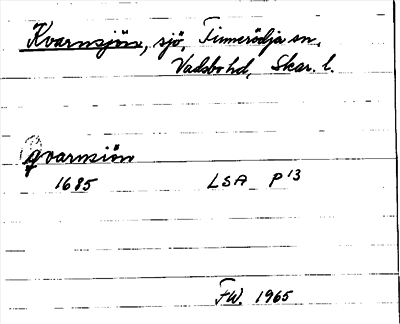 Kvarnsjön, sjö, Finnerödja sn,
Vadsbo hd, Skar. l.
qvarnsiön
1685 LSA P 13
FW. 1965